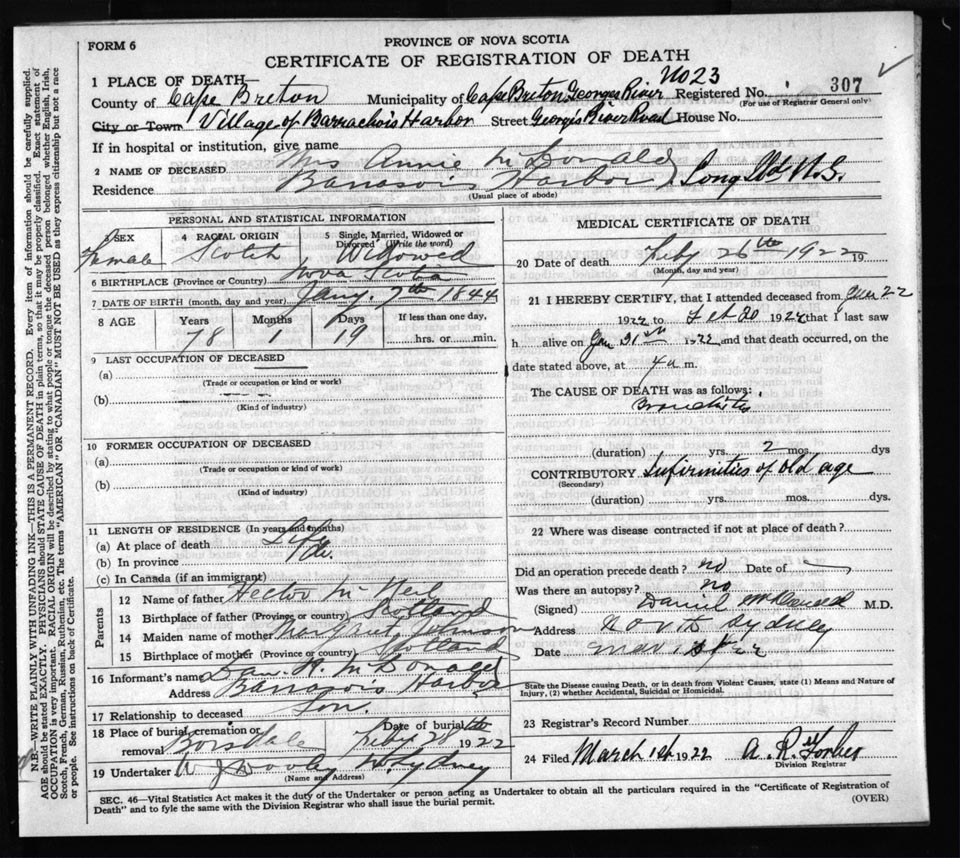 FORM 6
PROVINCE OF NOVA SCOTIA
CERTIFICATE OF REGISTRATION OF DEATH
1 PLACE OF DEATH—
No 23
307
County of Cape Breton Municipality of Cape Breton Georges River Registered No.
(For use of Registrar General only)
City or Town Village of Barrachois Harbor Street Georges River Road House No.
If in hospital or institution, give name
2 NAME OF DECEASED Mrs Annie McDonald
Residence Harbor Long Isld N.S.
(Usual place of abode)
PERSONAL AND STATISTICAL INFORMATION
3 SEX Female
4 RACIAL ORIGIN Scotch
5 Single, Married, Widowed or Divorced (Write the word) Widowed
6 BIRTHPLACE (Province or Country) Nova Scotia
7 DATE OF BIRTH (month, day and year) Jany. 7th 1844
8 AGE Years 78 Months 1 Days 19 If less than one day, hrs. or min.
9 LAST OCCUPATION OF DECEASED
(a)
(Trade or occupation or kind of work)
(b)
(Kind of industry)
10 FORMER OCCUPATION OF DECEASED
(a)
(Trade or occupation or kind of work)
(b)
(Kind of industry)
11 LENGTH OF RESIDENCE (In years and months)
(a) At place of death Life
(b) In province do.
(c) In Canada (if an immigrant)
Parents
12 Name of father Hector McNeil
13 Birthplace of father (Province or country) Scotland
14 Maiden name of mother Margret Johnson
15 Birthplace of mother (Province or country) Scotland
16 Informant's name McDonald
Address Harbor
17 Relationship to deceased Son.
18 Place of burial, cremation or removal Boisdale Date of burial Feby 28th 1922
19 Undertaker W J Dooley N. Sydney
(Name and Address)
MEDICAL CERTIFICATE OF DEATH
20 Date of death Feby 26th 1922 19
(Month, day and year)
21 I HEREBY CERTIFY, that I attended deceased from
1922 to Feb 20 1922 that I last saw
h alive on Jan 31st 1922 and that death occurred, on the
date stated above, at 4 a m.
The CAUSE OF DEATH was as follows:
Bronchitis
(duration) yrs. 2 mos. dys
CONTRIBUTORY Infirmities of old age
(Secondary)
(duration) yrs. mos. dys.
22 Where was disease contracted if not at place of death?
Did an operation precede death? no Date of
Was there an autopsy? no
(Signed) Daniel M.D.
Address North Sydney
Date Mar 1st/22
State the Disease causing Death, or in death from Violent Causes, state (1) Means and Nature of Injury, (2) whether Accidental, Suicidal or Homicidal.
23 Registrar's Record Number
24 Filed March 1st 1922 A. R. Forbes
Division Registrar
SEC. 46—Vital Statistics Act makes it the duty of the Undertaker or person acting as Undertaker to obtain all the particulars required in the "Certificate of Registration of
Death" and to fyle the same with the Division Registrar who shall issue the burial permit.
(OVER)
N.B.—WRITE PLAINLY WITH UNFADING INK—THIS IS A PERMANENT RECORD. Every item of information should be carefully supplied.
AGE should be stated EXACTLY. PHYSICIANS should STATE CAUSE OF DEATH in plain terms, so that it may be properly classified. Exact statement of
OCCUPATION is very important. RACIAL ORIGIN will be described by stating to what people or tongue the deceased person belonged whether English, Irish,
Scotch, French, German, Russian, Ruthenian, etc. The terms "AMERICAN" OR "CANADIAN" MUST NOT BE USED as they express citizenship but not a race
or people. See instructions on back of Certificate.